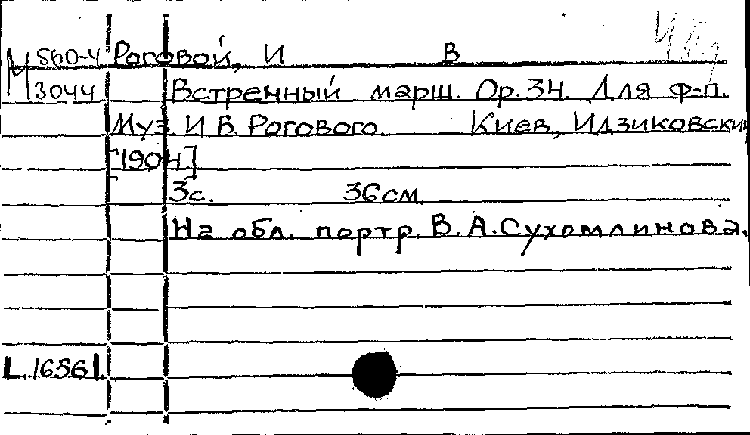 М 560-4 Роговой, И В
3044 Встречный марш. Op. 34. Для ф-п.
Муз. И В Рогового. Киев, Идзиковский
[1904]
3с. 36см.
На обл. портр. В. А. Сухомлинова.
L. 16561